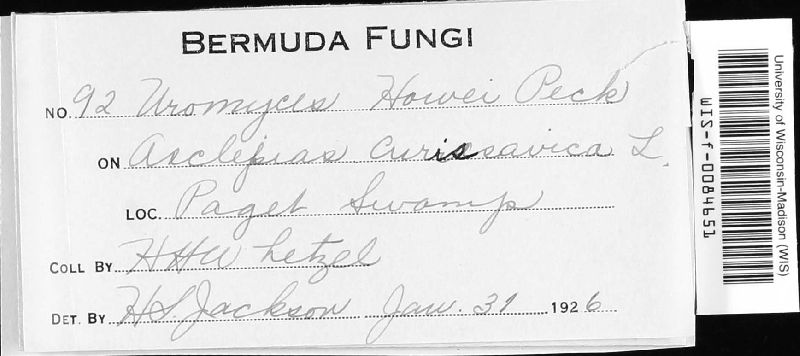 BERMUDA FUNGI
NO. 92 Uromyces Howei Peck
ON Asclepias curissavica L.
LOC. Paget Swamp
COLL BY H H Whetzel
DET. BY H S. Jackson Jan. 31 1926
University of Wisconsin-Madison (WIS)
WIS-f-0084651